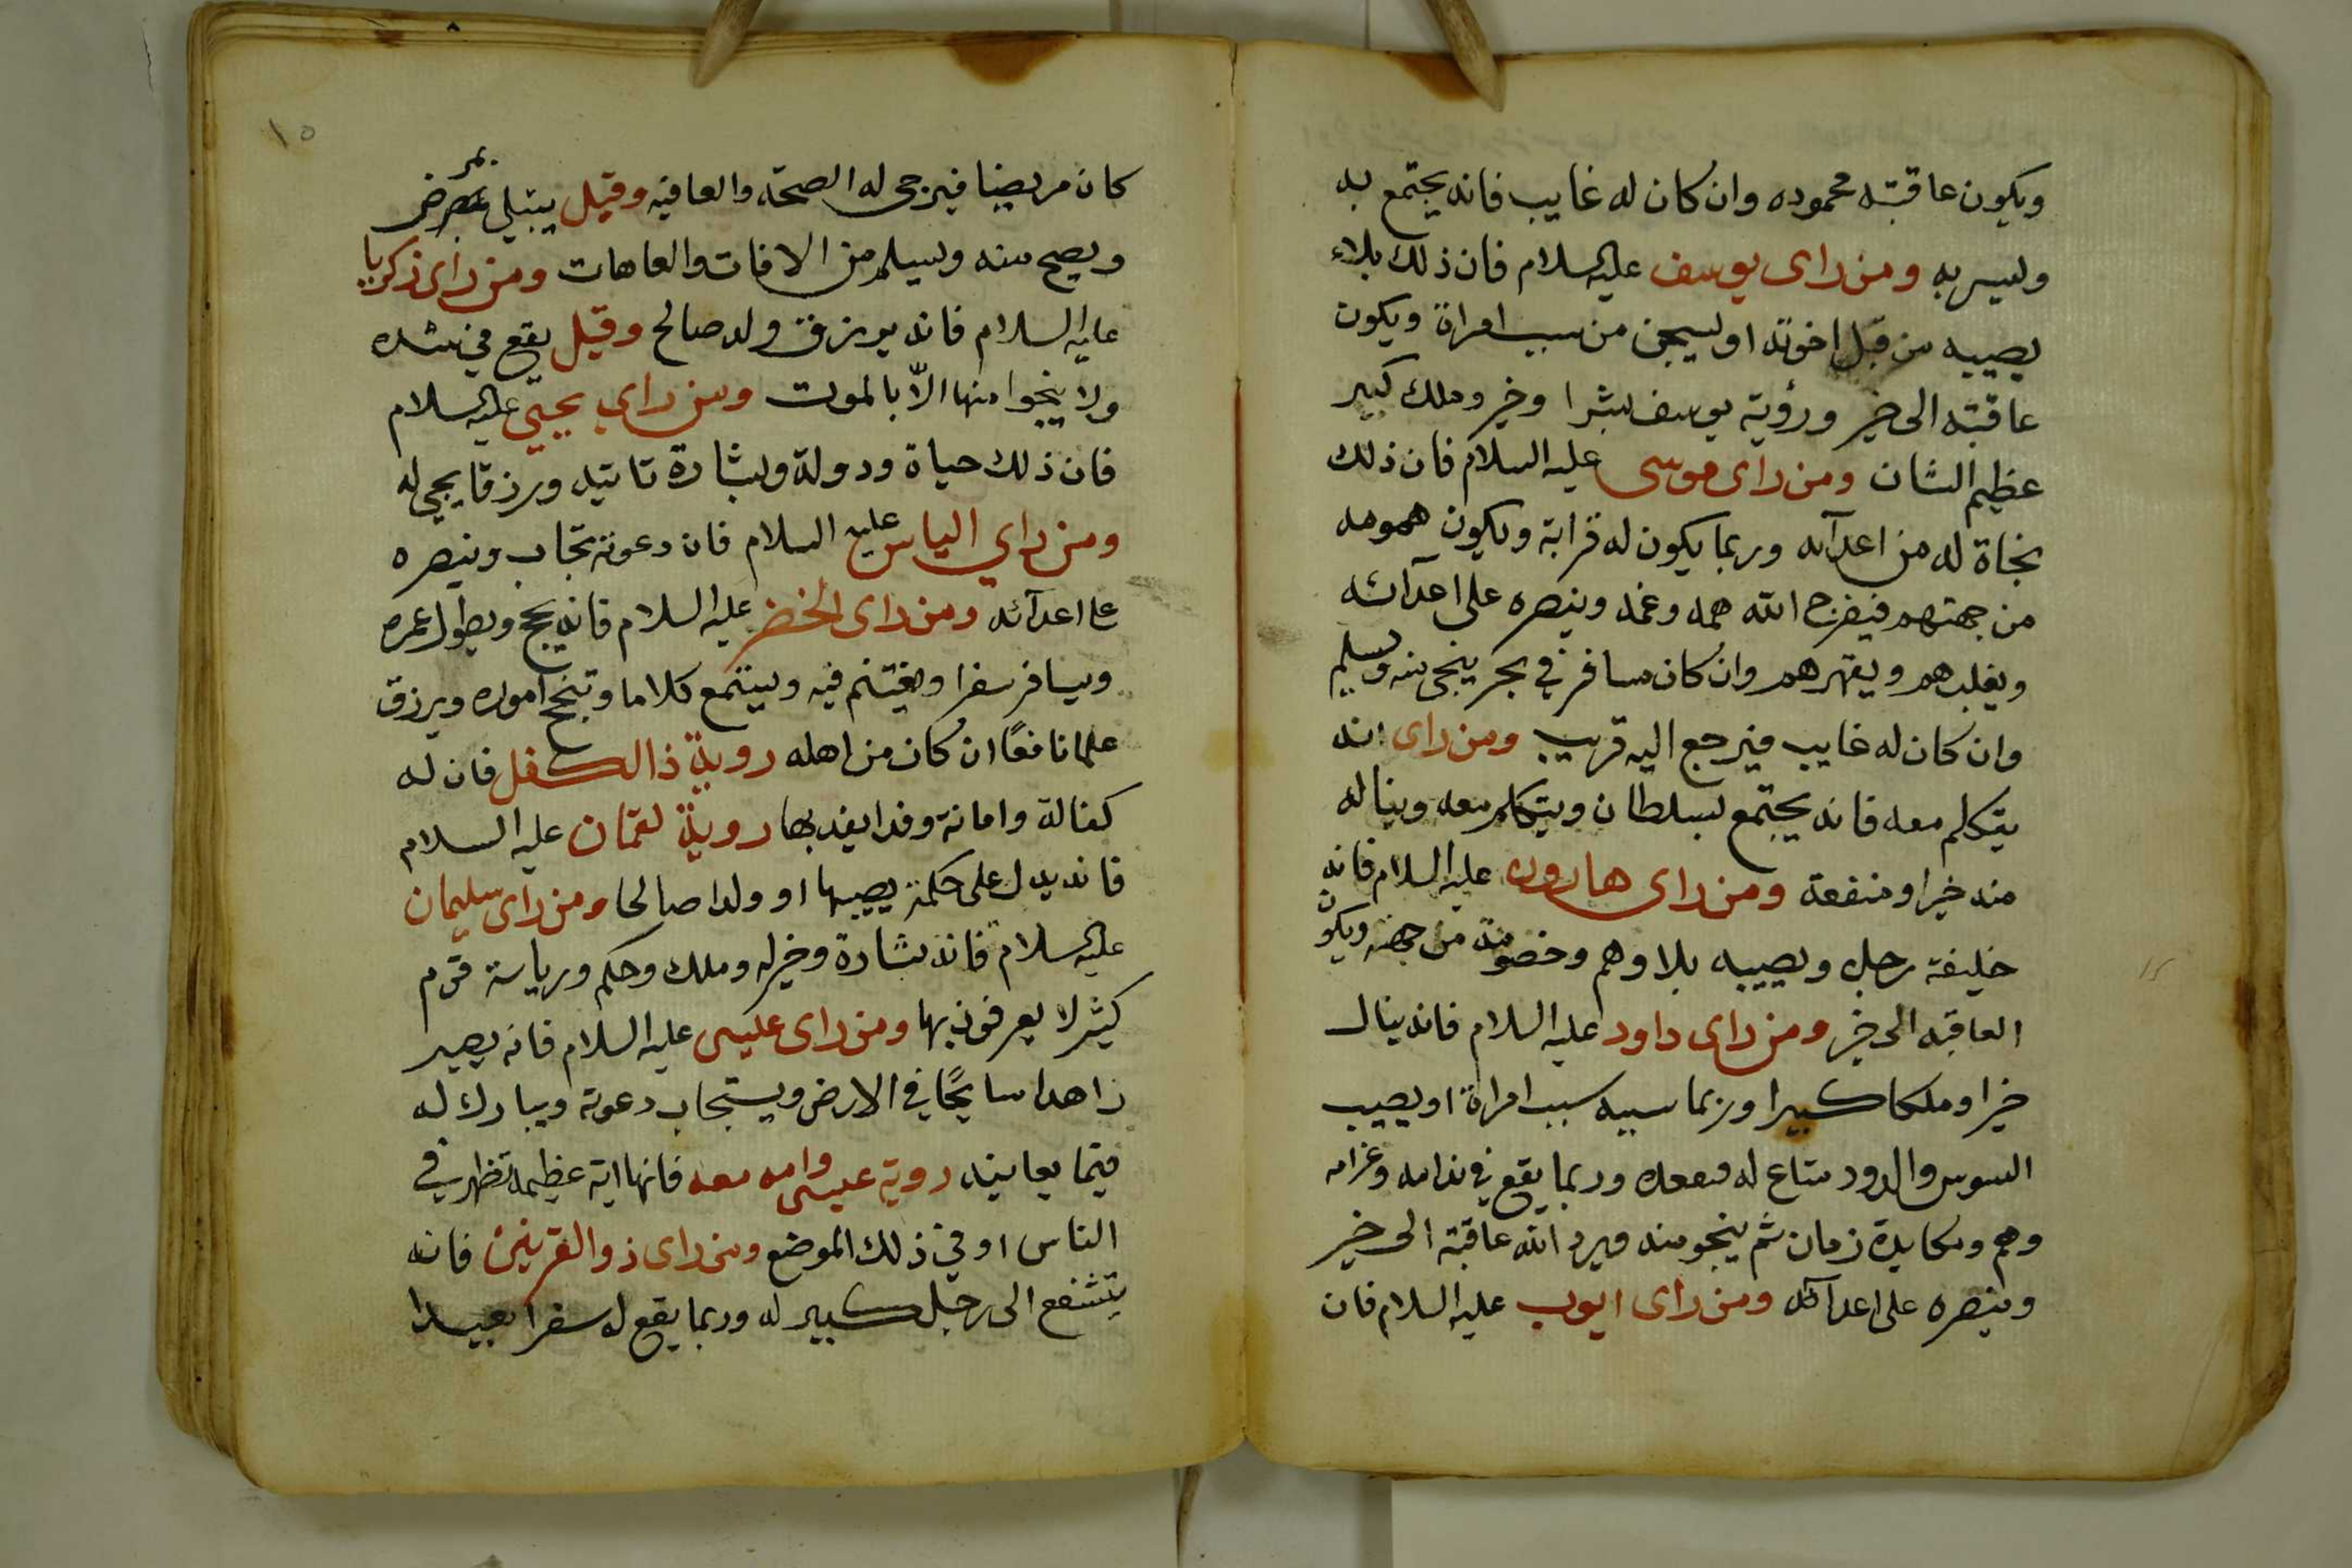 ويكون عاقبته محموده وان كان له غايب فانه يجتمع به
وليسر به ومن راى يوسف عليه السلام فان ذلك بلاء
يصيبه من قبل اخوته او ليسجن من سبب امراة ويكون
عاقبته الى خير ورؤية يوسف بشرا وخير وملك كبير
عظيم الشان ومن راى موسى عليه السلام فان ذلك
نجاة له من اعدآه وربما يكون له قرابة ويكون همومه
من جهتهم فيفرج الله همه وغمه وينصره على اعدآئه
ويغلبهم ويقهرهم وان كان مسافر في بحر ينجى منه وليسلم
وان كان له غايب فيرجع اليه قريب ومن راى انه
يتكلم معه فانه يجتمع لسلطان ويتكلم معه ويناله
منه خيرا ومنفعة ومن راى هارون عليه السلام فانه
خليفة رجل ويصيبه بلا وهم وخصومة من جهته ويكون
العاقبه الى خير ومن راى داود عليه السلام فانه ينال
خيرا وملكا كبيرا وربما سببه سبب امراة او يصيب
السوس والدود متاع له وربما يقع في ندامه وغرامه
وهم ومكابدة زمان ثم ينجو منه ويرد الله عاقبة الى خير
وينصره على اعدآئه ومن راى ايوب عليه السلام فان
١٥
كان مريضا فيرجى له الصحة والعافيه وقيل يبتلى بمرض
ويصح منه وليسلم من الافات والعاهات ومن راى زكريا
عليه السلام فانه يرزق ولد صالح وقيل يقع في شده
ولا ينجوا منها الّا بالموت ومن راي يحيى عليه السلام
فان ذلك حياة ودولة ولبشارة تاتيه ورزقا يجي له
ومن راي الياس عليه السلام فان دعوته تجاب وينصره
على اعدآئه ومن راى الخضر عليه السلام فانه يحج ويطول عمره
ويسافر سفرا ويغتنم فيه وليستمع كلاما وتنجح اموره ويرزق
علما نافعًا ان كان من اهله روية ذا الكفل فان له
كفالة وامانة وفدا يفد بها روية لقمان عليه السلام
فانه يدل على حكمة يصيبها او ولدا صالحا ومن راى سليمان
عليه السلام فانه بشارة وخير له وملك وحكم ورياسة قوم
كثير لا يعرفون بها ومن راى عيسى عليه السلام فانه يصير
زاهدا سايحًا في الارض ويستجاب دعوته ويبارك له
فيما يعاينه روية عيسى وامه معه فانها اية عظيمة تظهر في
الناس او في ذلك الموضع ومن راى ذو القرنين فانه
يتشفع الى رجل كبير له وربما يقع له سفرا بعيدا